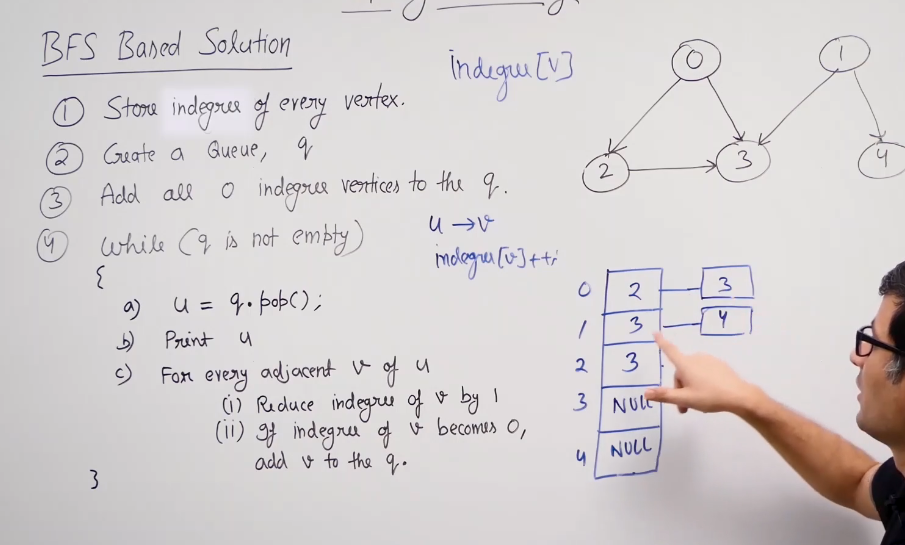 BFS Based Solution
① Store indegree of every vertex.
② Create a Queue, q
③ Add all 0 indegree vertices to the q.
④ While (q is not empty)
{
a) u = q.pop();
b) Print u
c) For every adjacent v of u
(i) Reduce indegree of v by 1
(ii) If indegree of v becomes 0,
add v to the q.
}
indegree[v]
u → v
indegree[v]++;
0 1
2 3 4
0 2 3
1 3 4
2 3
3 NULL
4 NULL